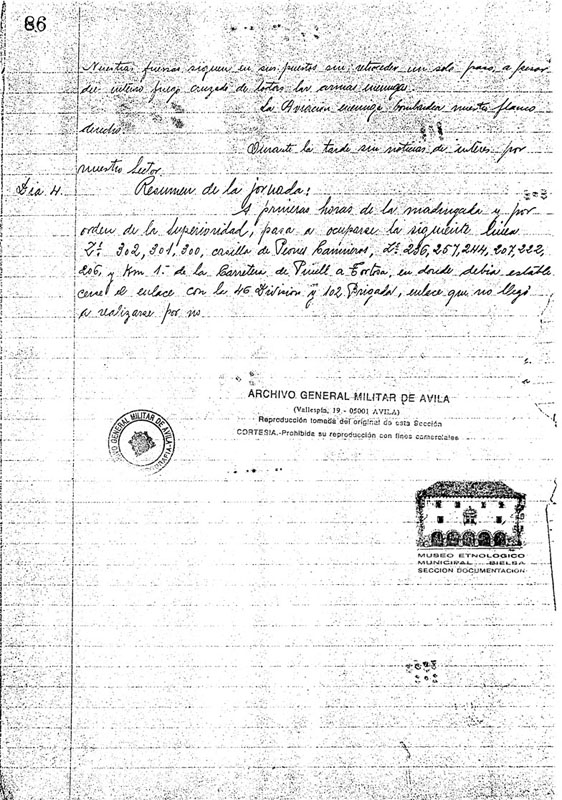 86
Nuestras fuerzas siguen en sus puestos sin retroceder un solo paso, a pesar
del intenso fuego cruzado de todas las armas enemigas.
La Aviación enemiga bombardea nuestro flanco
derecho.
Durante la tarde sin noticias de interes por
nuestro Sector.
Dia 4. Resumen de la jornada:
A primeras horas de la madrugada y por
orden de la Superioridad, pasa a ocuparse la siguiente linea
302, 301, 300, casilla de Peones Camineros, 256, 257, 244, 207, 222,
206, y Km 1 de la Carretera de Pinell a Tortosa, en donde debia estable
cerse el enlace con la 46 Division y 102 Brigada, enlace que no llegó
a realizarse por no
ARCHIVO GENERAL MILITAR DE AVILA
(Vallespin, 19 - 05001 AVILA)
Reproducción tomada del original de esta Sección
CORTESIA.-Prohibida su reproducción con fines comerciales
GENERAL MILITAR DE AVILA
MUSEO ETNOLOGICO
MUNICIPAL BIELSA
SECCION DOCUMENTACION